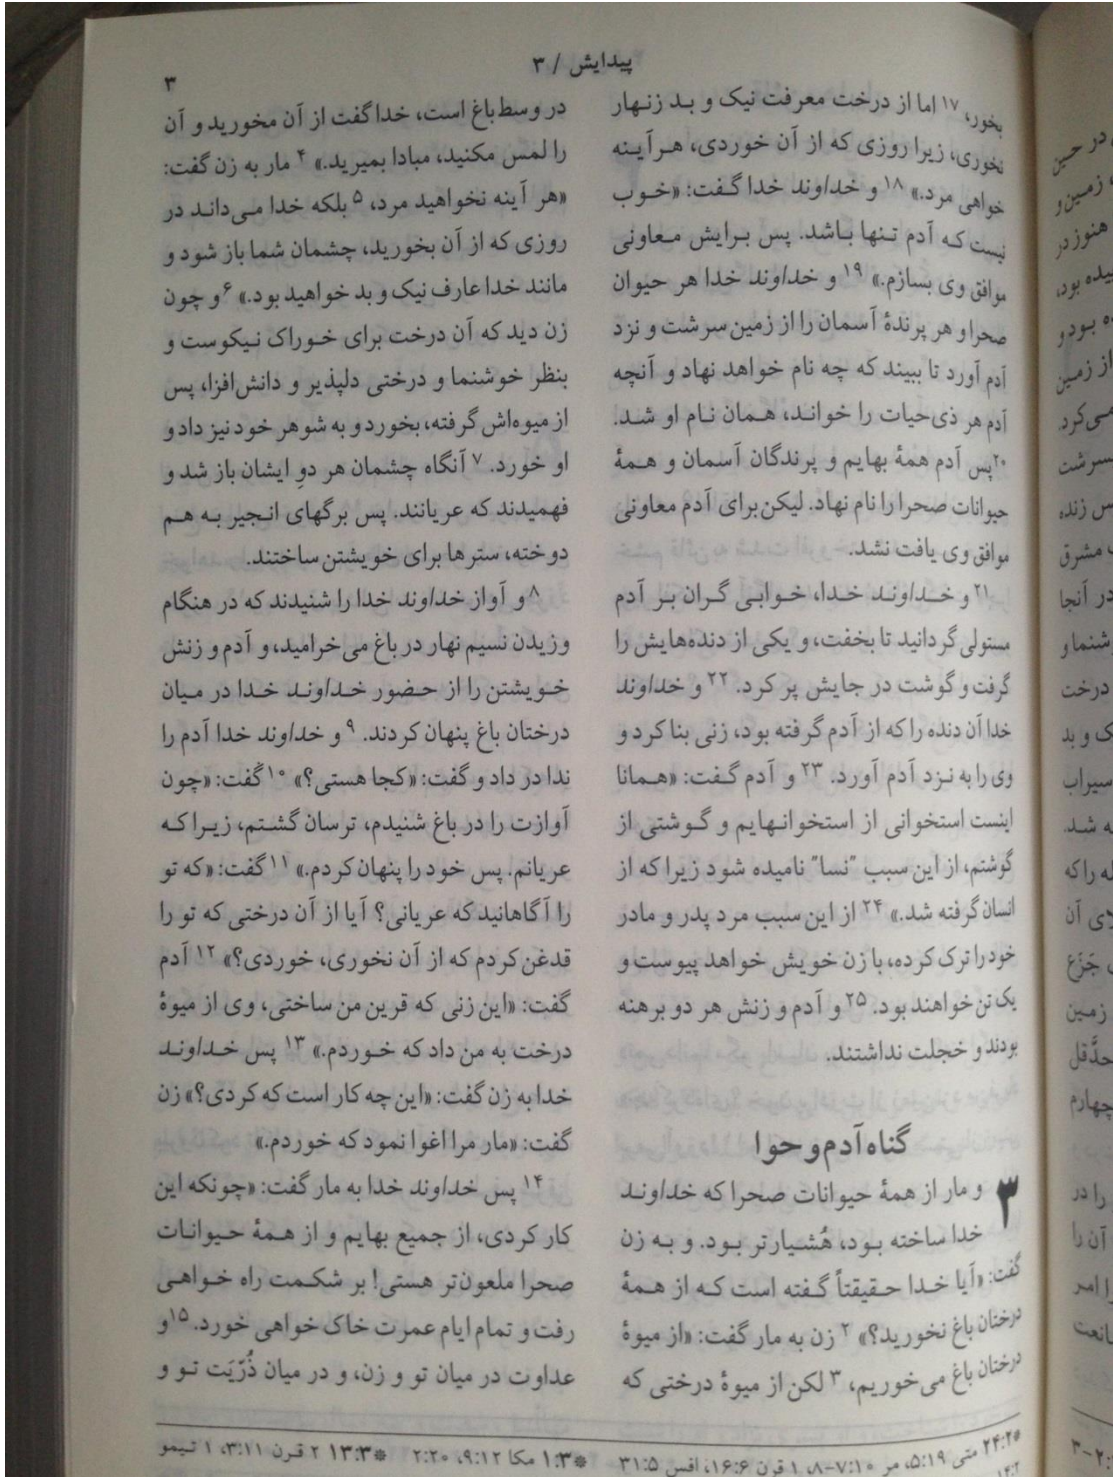 پیدایش / ۳
۳
بخور، ۱۷ اما از درخت معرفت نیک و بد زنهار
نخوری، زیرا روزی که از آن خوردی، هرآینه
خواهی مرد.» ۱۸ و خداوند خدا گفت: «خوب
نیست که آدم تنها باشد. پس برایش معاونی
موافق وی بسازم.» ۱۹ و خداوند خدا هر حیوان
صحرا و هر پرندهٔ آسمان را از زمین سرشت و نزد
آدم آورد تا ببیند که چه نام خواهد نهاد و آنچه
آدم هر ذی‌حیات را خواند، همان نام او شد.
۲۰پس آدم همهٔ بهایم و پرندگان آسمان و همهٔ
حیوانات صحرا را نام نهاد. لیکن برای آدم معاونی
موافق وی یافت نشد.
۲۱ و خداوند خدا، خوابی گران بر آدم
مستولی گردانید تا بخفت، و یکی از دنده‌هایش را
گرفت و گوشت در جایش پر کرد. ۲۲ و خداوند
خدا آن دنده را که از آدم گرفته بود، زنی بنا کرد و
وی را به نزد آدم آورد. ۲۳ و آدم گفت: «همانا
اینست استخوانی از استخوانهایم و گوشتی از
گوشتم، از این سبب "نسا" نامیده شود زیرا که از
انسان گرفته شد.» ۲۴ از این سبب مرد پدر و مادر
خود را ترک کرده، با زن خویش خواهد پیوست و
یک تن خواهند بود. ۲۵ و آدم و زنش هر دو برهنه
بودند و خجلت نداشتند.
گناه آدم و حوا
۳ و مار از همهٔ حیوانات صحرا که خداوند
خدا ساخته بود، هُشیارتر بود. و به زن
گفت: «آیا خدا حقیقتاً گفته است که از همهٔ
درختان باغ نخورید؟» ۲ زن به مار گفت: «از میوهٔ
درختان باغ می‌خوریم، ۳ لکن از میوهٔ درختی که
در وسط باغ است، خدا گفت از آن مخورید و آن
را لمس مکنید، مبادا بمیرید.» ۴ مار به زن گفت:
«هر آینه نخواهید مرد، ۵ بلکه خدا می‌داند در
روزی که از آن بخورید، چشمان شما باز شود و
مانند خدا عارف نیک و بد خواهید بود.» ۶ و چون
زن دید که آن درخت برای خوراک نیکوست و
بنظر خوشنما و درختی دلپذیر و دانش‌افزا، پس
از میوه‌اش گرفته، بخورد و به شوهر خود نیز داد و
او خورد. ۷ آنگاه چشمان هر دوِ ایشان باز شد و
فهمیدند که عریانند. پس برگهای انجیر به هم
دوخته، سترها برای خویشتن ساختند.
۸ و آواز خداوند خدا را شنیدند که در هنگام
وزیدن نسیم نهار در باغ می‌خرامید، و آدم و زنش
خویشتن را از حضور خداوند خدا در میان
درختان باغ پنهان کردند. ۹ و خداوند خدا آدم را
ندا در داد و گفت: «کجا هستی؟» ۱۰ گفت: «چون
آوازت را در باغ شنیدم، ترسان گشتم، زیرا که
عریانم. پس خود را پنهان کردم.» ۱۱ گفت: «که تو
را آگاهانید که عریانی؟ آیا از آن درختی که تو را
قدغن کردم که از آن نخوری، خوردی؟» ۱۲ آدم
گفت: «این زنی که قرین من ساختی، وی از میوهٔ
درخت به من داد که خوردم.» ۱۳ پس خداوند
خدا به زن گفت: «این چه کار است که کردی؟» زن
گفت: «مار مرا اغوا نمود که خوردم.»
۱۴ پس خداوند خدا به مار گفت: «چونکه این
کار کردی، از جمیع بهایم و از همهٔ حیوانات
صحرا ملعون‌تر هستی! بر شکمت راه خواهی
رفت و تمام ایام عمرت خاک خواهی خورد. ۱۵و
عداوت در میان تو و زن، و در میان ذُرّیَت تو و
*۲۴:۲ متی ۵:۱۹، مر ۷:۱۰-۸، ۱ قرن ۱۶:۶، افس ۳۱:۵ *۱:۳ مکا ۹:۱۲، ۲:۲۰ *۱۳:۳ ۲ قرن ۳:۱۱، ۱ تیمو
۱۴:۲